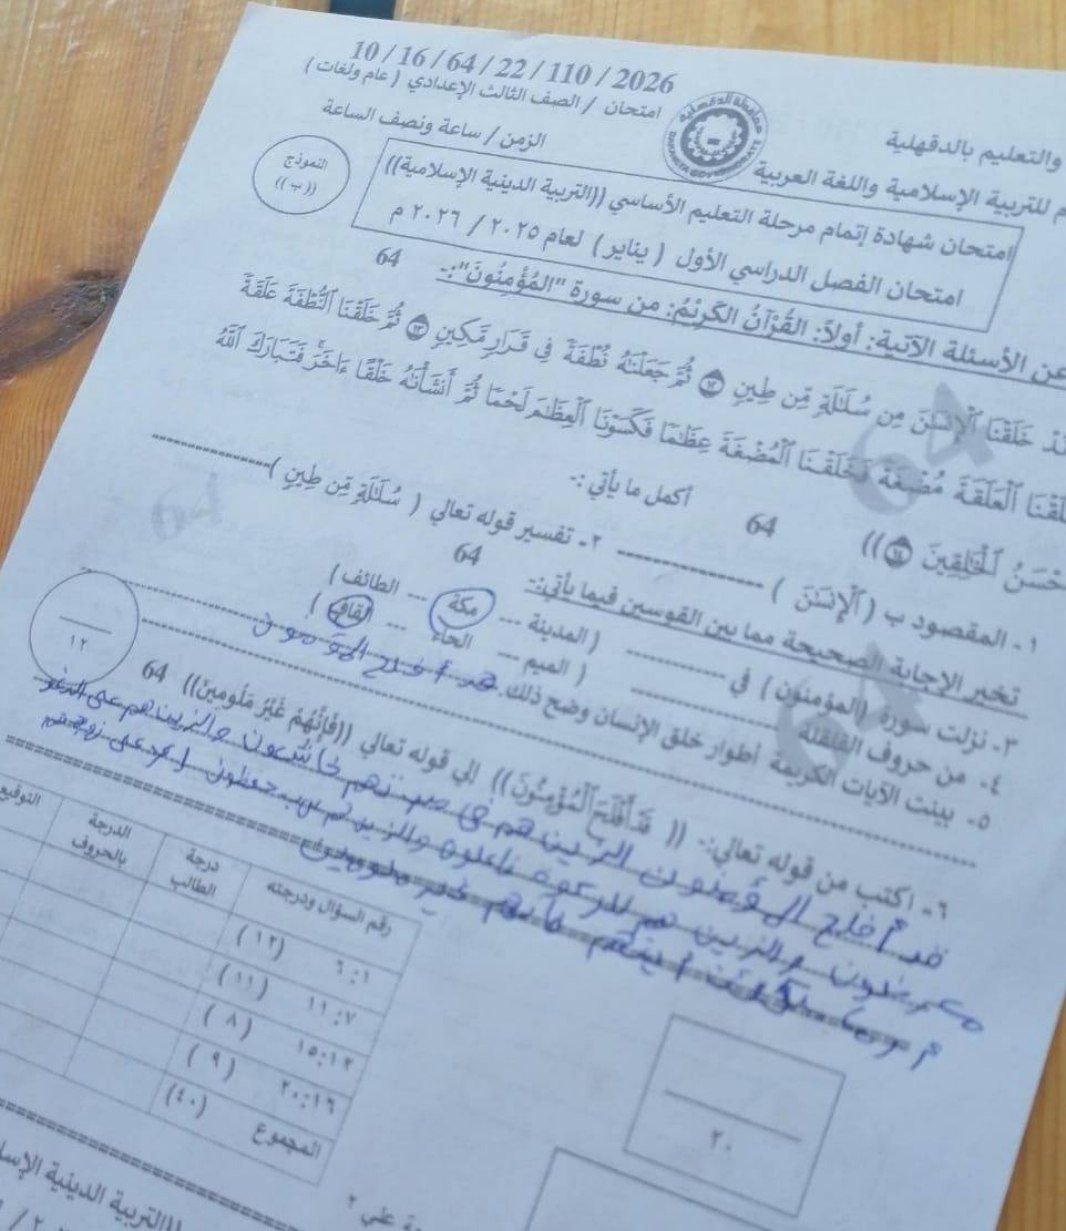 10 / 16 / 64 / 22 / 110 / 2026
والتعليم بالدقهلية
امتحان / الصف الثالث الإعدادي ( عام ولغات )
للتربية الإسلامية واللغة العربية
الزمن / ساعة ونصف الساعة
النموذج
(( ب ))
امتحان شهادة إتمام مرحلة التعليم الأساسي ((التربية الدينية الإسلامية))
امتحان الفصل الدراسي الأول ( يناير ) لعام ٢٠٢٥ / ٢٠٢٦ م
64
عن الأسئلة الآتية: أولاً: القُرْآنُ الكَرِيْمُ: من سورة "المُؤْمِنُونَ":-
خَلَقْنَا ٱلْإِنسَٰنَ مِن سُلَٰلَةٍ مِّن طِينٍ ١٢ ثُمَّ جَعَلْنَٰهُ نُطْفَةً فِي قَرَارٍ مَّكِينٍ ١٣ ثُمَّ خَلَقْنَا ٱلنُّطْفَةَ عَلَقَةً
ٱلْعَلَقَةَ مُضْغَةً فَخَلَقْنَا ٱلْمُضْغَةَ عِظَٰمًا فَكَسَوْنَا ٱلْعِظَٰمَ لَحْمًا ثُمَّ أَنشَأْنَٰهُ خَلْقًا ءَاخَرَ فَتَبَارَكَ ٱللَّهُ
ٱلْخَٰلِقِينَ ١٤ ))
64
أكمل ما يأتي :-
١- المقصود ب ( ٱلْإِنسَٰنَ )
٢- تفسير قوله تعالي ( سُلَٰلَةٍ مِّن طِينٍ )
64
تخير الإجابة الصحيحة مما بين القوسين فيما يأتي:-
٣- نزلت سورة (المؤمنون ) في
( المدينة --- مكة --- الطائف )
٤- من حروف القلقلة
( الميم --- الحاء --- القاف )
٥- بينت الآيات الكريمة أطوار خلق الإنسان وضح ذلك.
١٢
٦- اكتب من قوله تعالي:- (( قَدْ أَفْلَحَ ٱلْمُؤْمِنُونَ )) إلي قوله تعالي ((فَإِنَّهُمْ غَيْرُ مَلُومِينَ)) 64
قد أفلح المؤمنون الذين هم في صلاتهم خاشعون والذين هم عن اللغو
معرضون والذين هم للزكوة فاعلون والذين هم لفروجهم حفظون إلا على أزوجهم
أو ما ملكت أيمنهم فإنهم غير ملومين
رقم السؤال ودرجته
درجة الطالب
الدرجة بالحروف
التوقيع
٦:١ (١٢)
١١:٧ (١١)
١٥:١٢ (٨)
٢٠:١٦ (٩)
المجموع (٤٠)
٢٠